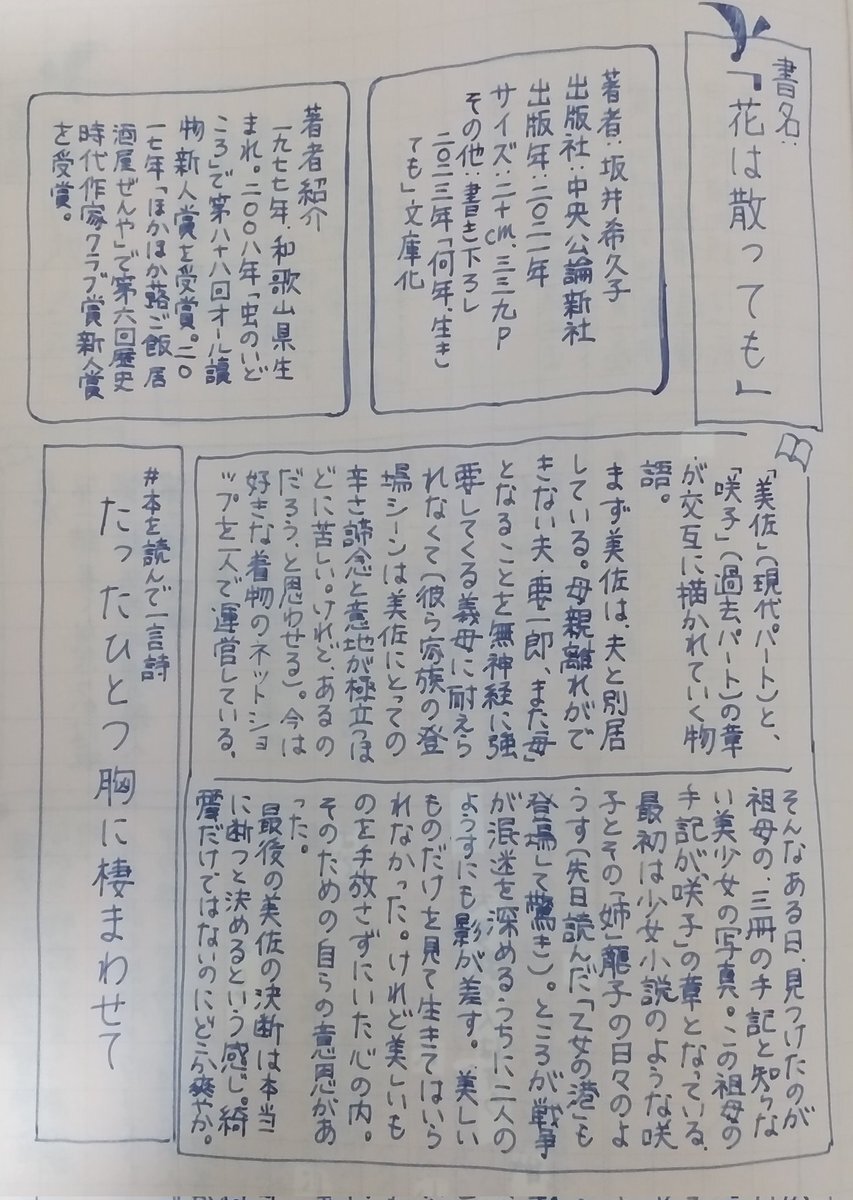 書名:
「花は散っても」
著者:坂井希久子
出版社:中央公論新社
出版年:二〇二一年
サイズ:二十cm、三三九P
その他:書き下ろし
二〇二三年「何年、生き
ても」文庫化
著者紹介
一九七七年、和歌山県生
まれ。二〇〇八年「虫のいど
ころ」で第八十八回オール讀
物新人賞を受賞。二〇
一七年「ほかほか蕗ご飯 居
酒屋ぜんや」で第六回歴史
時代作家クラブ賞新人賞
を受賞。
「美佐」(現代パート)と、
「咲子」(過去パート)の章
が交互に描かれていく物
語。
まず美佐は、夫と別居
している。母親離れがで
きない夫・要一郎、また「母」
となることを無神経に強
要してくる義母に耐えら
れなくて(彼ら家族の登
場シーンは美佐にとっての
辛さ諦念と意地が極立つほ
どに苦しい。けれど、あるの
だろう、と思わせる)。今は
好きな着物のネットショ
ップを一人で運営している。
そんなある日、見つけたのが
祖母の、三冊の手記と知らな
い美少女の写真。この祖母の
手記が、「咲子」の章となっている。
最初は少女小説のような咲
子とその「姉」龍子の日々のよ
うす(先日読んだ「乙女の港」も
登場して驚き)。ところが戦争
が混迷を深めるうちに二人の
ようすにも影が差す。美しい
ものだけを見て生きてはいら
れなかった。けれど美しいも
のを手放さずにいた心の内。
そのための自らの意思があ
った。
最後の美佐の決断は本当
に断つと決めるという感じ。綺
麗だけではないのにどこか爽やか。
#本を読んで一言詩
たったひとつ胸に棲まわせて